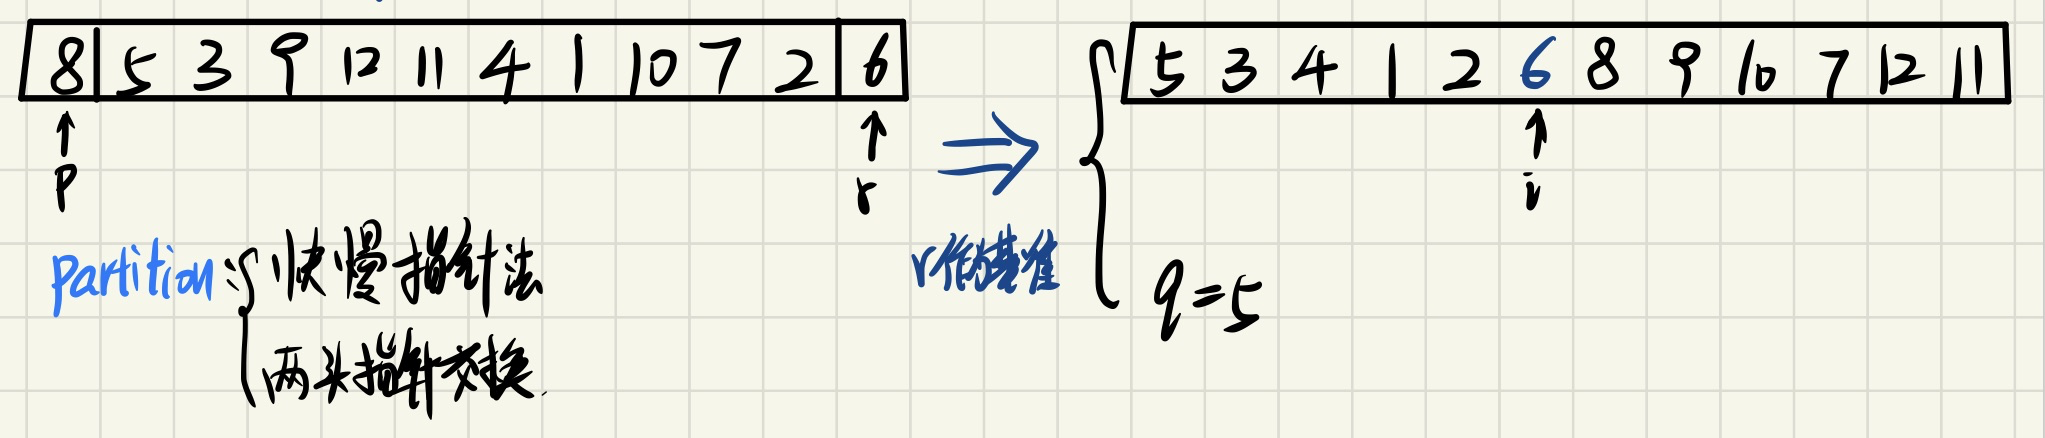 8 5 3 9 12 11 4 1 10 7 2 6
p r
partition: 快慢指针法
两头指针交换.
r作为基准
5 3 4 1 2 6 8 9 10 7 12 11
i
q=5